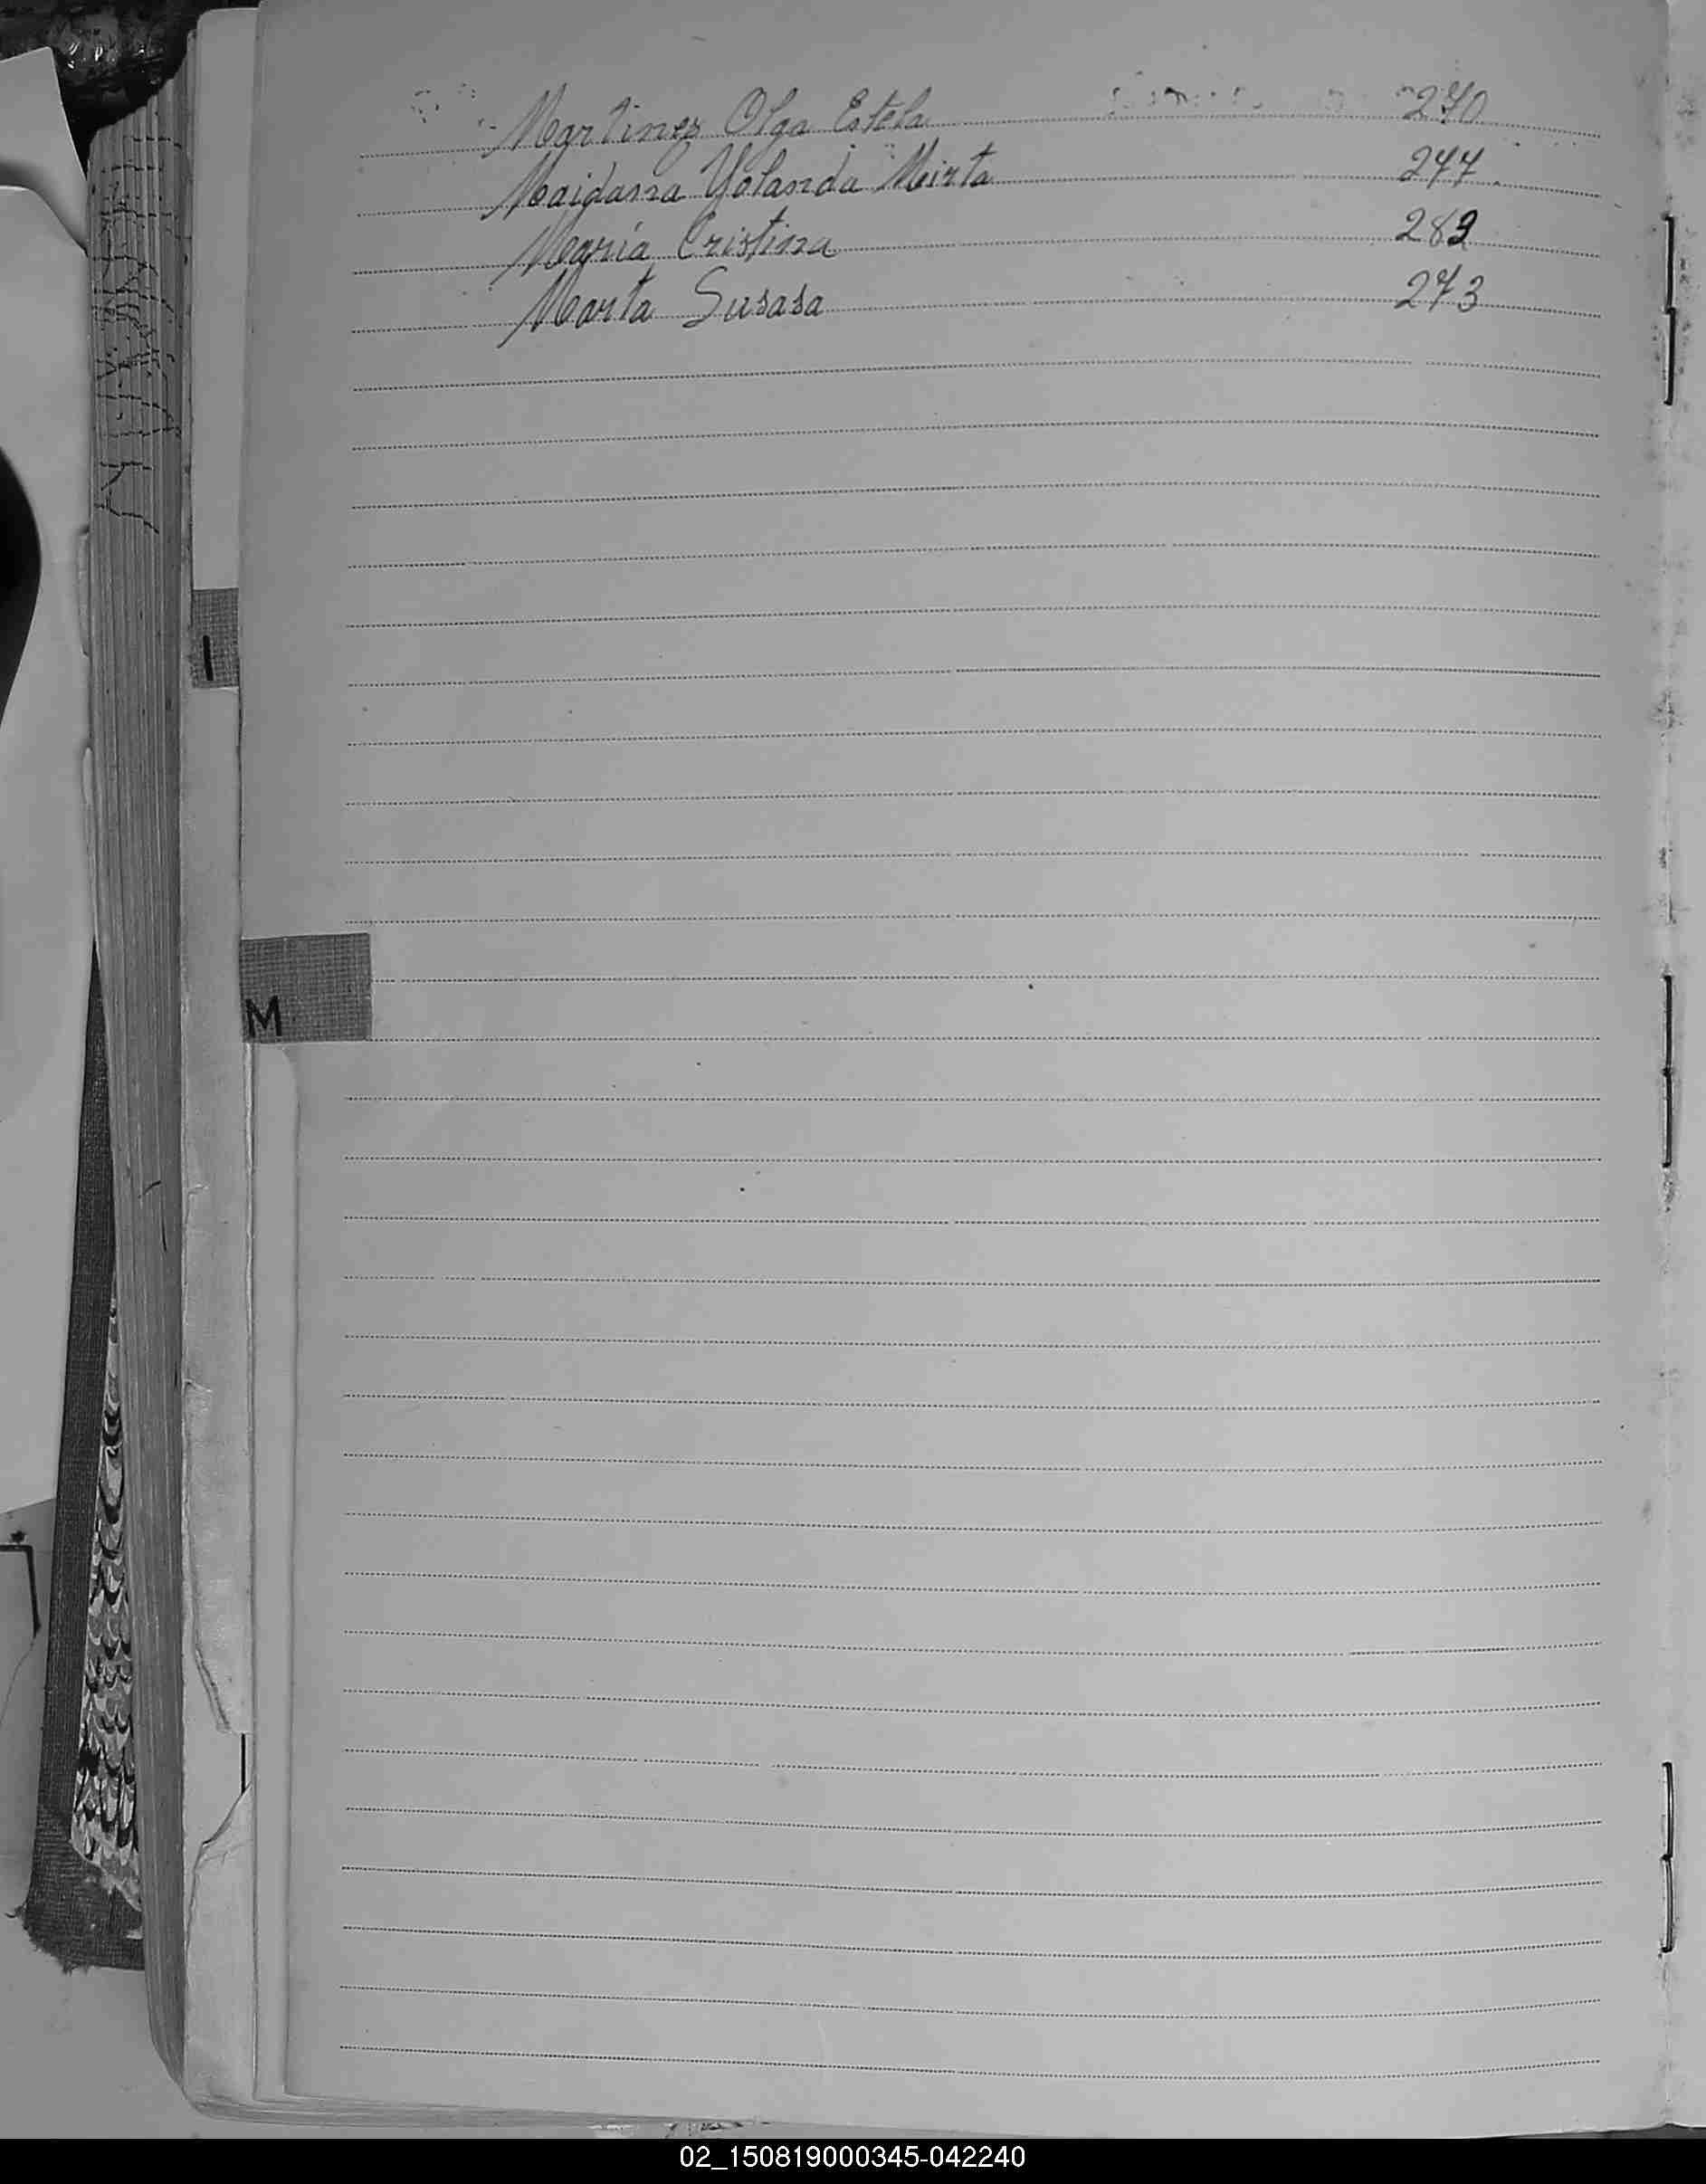 Martinez Olga Estela 270
Maidana Yolanda Mirta 277
María Cristina 282
Marta Susana 273
I
M
02_150819000345-042240